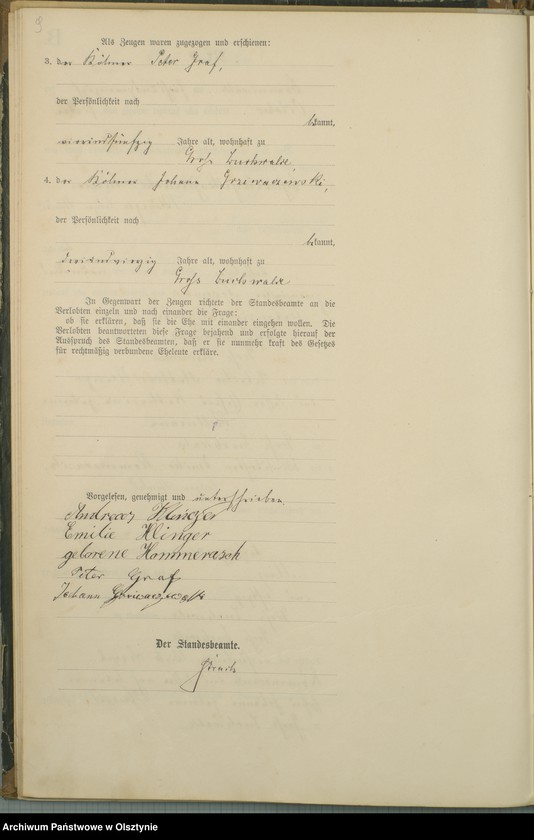 Als Zeugen waren zugezogen und erschienen:
3. der Kölmer Peter Graf,
der Persönlichkeit nach
bekannt,
vierundfünfzig Jahre alt, wohnhaft zu
Groß Buchwalde
4. der Kölmer Johann
der Persönlichkeit nach
bekannt,
dreiundvierzig Jahre alt, wohnhaft zu
Groß Buchwalde
In Gegenwart der Zeugen richtete der Standesbeamte an die
Verlobten einzeln und nach einander die Frage:
ob sie erklären, daß sie die Ehe mit einander eingehen wollen. Die
Verlobten beantworteten diese Frage bejahend und erfolgte hierauf der
Ausspruch des Standesbeamten, daß er sie nunmehr kraft des Gesetzes
für rechtmäßig verbundene Eheleute erkläre.
Vorgelesen, genehmigt und unterschrieben
Andreas Klinger
Emilie Klinger
geborene Hommerasch
Peter Graf
Johann
Der Standesbeamte.
Archiwum Państwowe w Olsztynie